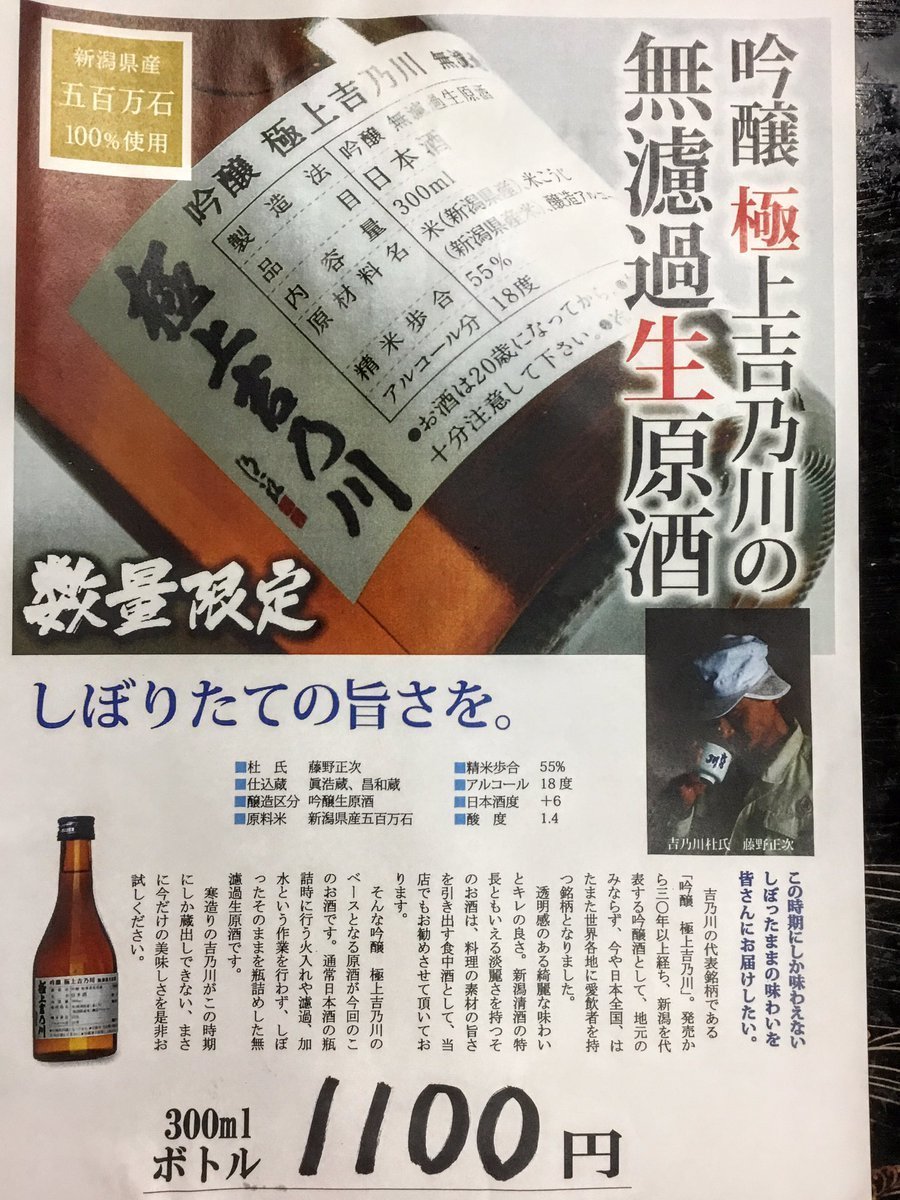 新潟県産
五百万石
100%使用
吟醸 極上吉乃川の
無濾過生原酒
吟醸 極上吉乃川 無濾
製造法 吟醸 無濾過生原酒
品目 日本酒
内容量 300ml
原材料名 米(新潟県産)、米こうじ
(新潟県産米)、醸造アルコー
精米歩合 55%
アルコール分 18度
●お酒は20歳になってから。
十分注意して下さい。
極上吉乃川
数量限定
しぼりたての旨さを。
■杜 氏 藤野正次
■仕込蔵 眞浩蔵、昌和蔵
■醸造区分 吟醸生原酒
■原料米 新潟県産五百万石
■精米歩合 55%
■アルコール 18度
■日本酒度 +6
■酸 度 1.4
吉乃川杜氏 藤野正次
この時期にしか味わえない
しぼったままの味わいを
皆さんにお届けしたい。
吉乃川の代表銘柄である
「吟醸 極上吉乃川」。発売か
ら三〇年以上経ち、新潟を代
表する吟醸酒として、地元の
みならず、今や日本全国、は
たまた世界各地に愛飲者を持
つ銘柄となりました。
透明感のある綺麗な味わい
とキレの良さ。新潟清酒の特
長ともいえる淡麗さを持つそ
のお酒は、料理の素材の旨さ
を引き出す食中酒として、当
店でもお勧めさせて頂いてお
ります。
そんな吟醸 極上吉乃川の
ベースとなる原酒が今回のこ
のお酒です。通常日本酒の瓶
詰時に行う火入れや濾過、加
水という作業を行わず、しぼ
ったそのままを瓶詰めした無
濾過生原酒です。
寒造りの吉乃川がこの時期
にしか蔵出しできない、まさ
に今だけの美味しさを是非お
試しください。
吟醸 極上吉乃川
極上吉乃川
300ml
ボトル
1100円